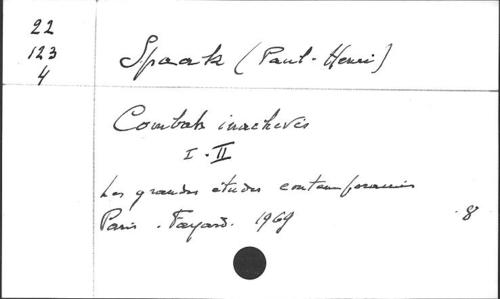 22
123
4
Spaak (Paul-Henri)
Combats inachevés
I - II
Les grandes études contemporaines
Paris - Fayard. 1969
8